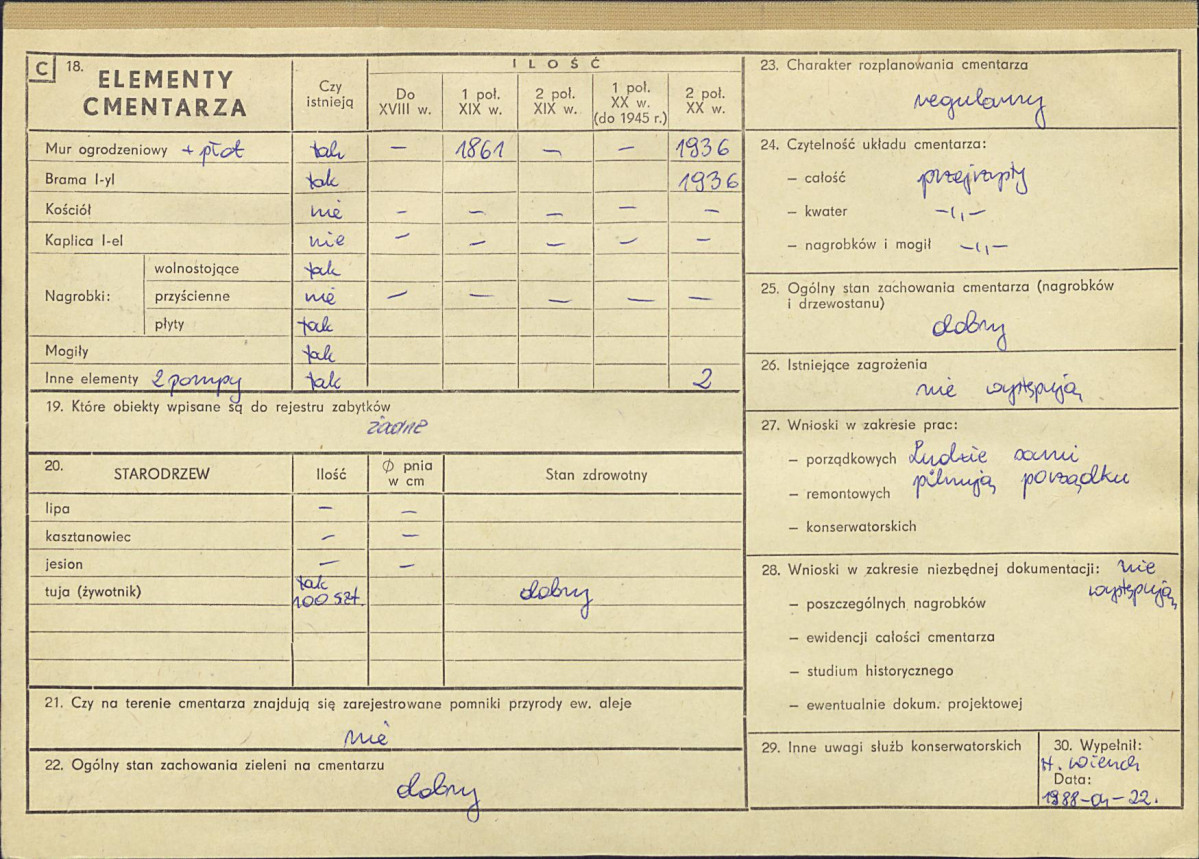 C 18. ELEMENTY
CMENTARZA
Czy
istnieją
I L O Ś Ć
Do
XVIII w.
1 poł.
XIX w.
2 poł.
XIX w.
1 poł.
XX w.
(do 1945 r.)
2 poł.
XX w.
Mur ogrodzeniowy + płot tak – 1861 – – 1936
Brama I-yl tak 1936
Kościół nie – – – – –
Kaplica I-el nie – – – – –
Nagrobki:
wolnostojące tak
przyścienne nie – – – – –
płyty tak
Mogiły tak
Inne elementy 2 pompy tak 2
19. Które obiekty wpisane są do rejestru zabytków
żadne
20. STARODRZEW Ilość Ø pnia
w cm
Stan zdrowotny
lipa – –
kasztanowiec – –
jesion – –
tuja (żywotnik) tak
100 szt. dobry
21. Czy na terenie cmentarza znajdują się zarejestrowane pomniki przyrody ew. aleje
nie
22. Ogólny stan zachowania zieleni na cmentarzu
dobry
23. Charakter rozplanowania cmentarza
regularny
24. Czytelność układu cmentarza:
– całość przejrzysty
– kwater –„–
– nagrobków i mogił –„–
25. Ogólny stan zachowania cmentarza (nagrobków
i drzewostanu)
dobry
26. Istniejące zagrożenia
nie występują
27. Wnioski w zakresie prac:
– porządkowych Ludzie sami
pilnują porządku
– remontowych
– konserwatorskich
28. Wnioski w zakresie niezbędnej dokumentacji: nie
występują
– poszczególnych nagrobków
– ewidencji całości cmentarza
– studium historycznego
– ewentualnie dokum. projektowej
29. Inne uwagi służb konserwatorskich
30. Wypełnił:
H.
Data: